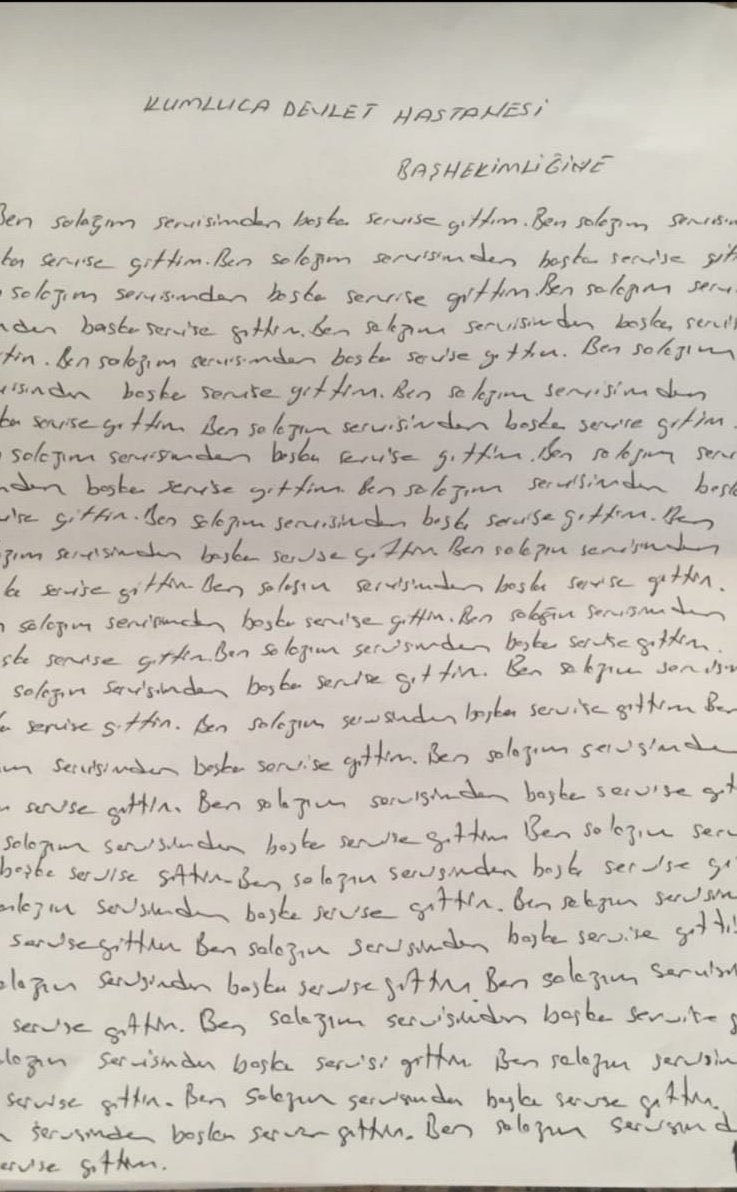 KUMLUCA DEVLET HASTANESİ
BAŞHEKİMLİĞİNE
Ben salağım servisimden başka servise gittim. Ben salağım servisim
ka servise gittim. Ben salağım servisimden başka servise git
salağım servisimden başka servise gittim. Ben salağım serv
nden başka servise gittim. Ben salağım servisimden başka servis
tim. Ben salağım servisimden başka servise gittim. Ben salağım
visimden başka servise gittim. Ben salağım servisimden
ka servise gittim Ben salağım servisimden başka servise gittim.
salağım servisimden başka servise gittim. Ben salağım serv
nden başka servise gittim. Ben salağım servisimden başk
vise gittim. Ben salağım servisimden başka servise gittim. Ben
ağım servisimden başka servise gittim Ben salağım servisimden
ka servise gittim Ben salağım servisimden başka servise gittim.
n salağım servisimden başka servise gittim. Ben salağım servisimden
şka servise gittim. Ben salağım servisimden başka servise gittim.
salağım servisimden başka servise gittim. Ben salağım servisim
a servise gittim. Ben salağım servisimden başka servise gittim Ben
ım servisimden başka servise gittim. Ben salağım servisimden
servise gittim. Ben salağım servisimden başka servise git
salağım servisimden başka servise gittim Ben salağım serv
başka servise gittim. Ben salağım servisimden başka servise gi
alağım servisimden başka servise gittim. Ben salağım servisim
servise gittim Ben salağım servisimden başka servise gitti
alağım servisimden başka servise gittim Ben salağım servisim
servise gittim. Ben salağım servisimden başka servise g
lağım servisimden başka servisi gittim Ben salağım servisim
servise gittim. Ben salağım servisimden başka servise gittim.
servisimden başka servise gittim. Ben salağım servisimd
servise gittim.